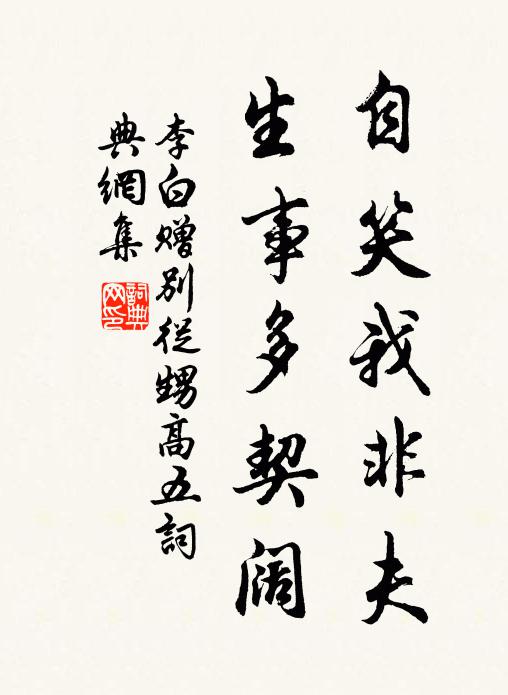 自笑我非夫
生事多契阔
李白赠别從甥高五詞
典網集
詞典网印